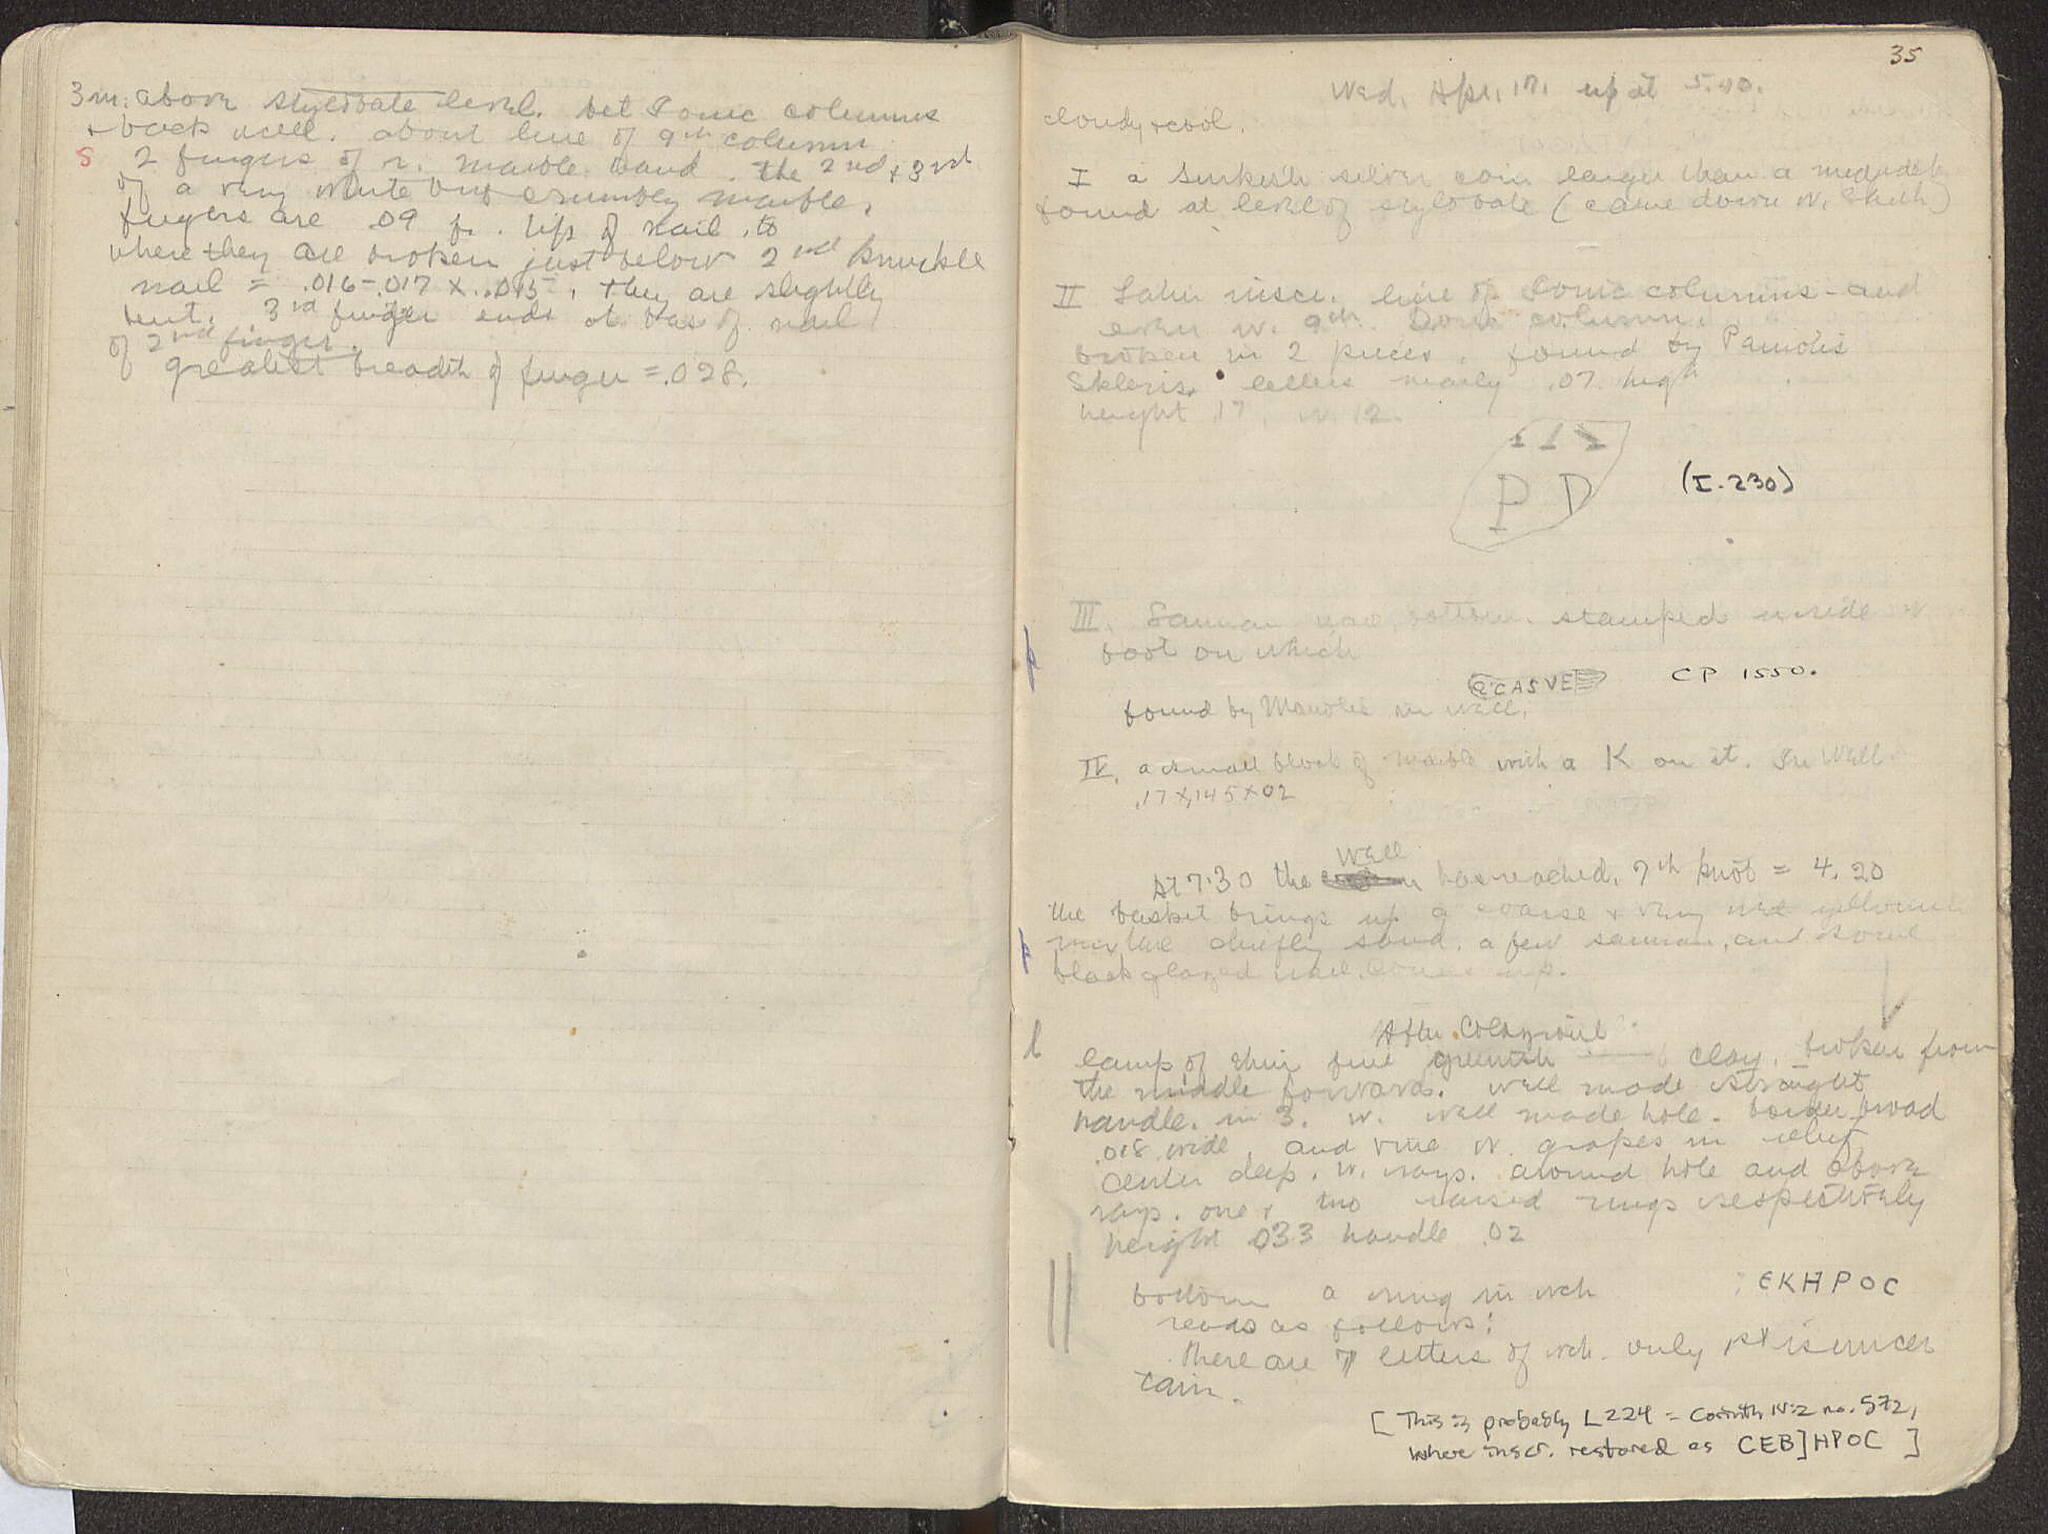 3 m. above stylobate level. bet Ionic columns
+ back wall. about line of 9th column
S 2 fingers of r. marble hand. the 2nd + 3rd
of a very white but crumbly marble.
fingers are .09 fr. tip of nail. to
where they are broken just below 2nd knuckle
nail = .016-.017 x .015, they are slightly
bent. 3rd finger ends at bas of nail
of 2nd finger.
greatest breadth of finger = .028.
35
Wed. Apr. 17. up at 5.40.
cloudy + cool.
I a Turkish silver coin larger than a
found at level of stylobate (came down
II Latin inscr. line of Ionic columns - and
even w. 9th Doric column.
broken in 2 pieces. found by Panolis
Skleris. letters nearly .07 high
height .17. w. 12.
P D
(I-230)
III. Samian vase, bottom. stamped inside w
foot on which
CASVE
CP 1550.
found by Manolis in well.
IV. a small block of marble with a K on it. In Well.
.17 x .145 x 02
Well
At 7.30 the has reached. 7th knot = 4.20
the basket brings up a coarse + very wet yellowish
mixture chiefly sand. a few samian, and some
black glazed ware comes up.
After Colazione
l lamp of thin fine greenish clay. broken from
the middle forwards. well made straight
handle. in 3. w. well made hole. border broad
.018 wide and vine w. grapes in relief
center deep. w. rays. around hole and above
rays. one + two raised rings respectively
height .033 handle .02
bottom a ring in wch EKHPOC
reads as follows:
There are 7 letters of wch. only 1st is uncer
tain.
[This is probably L224 = Corinth IV:2 no. 572,
where inscr. restored as CEB]HPOC ]